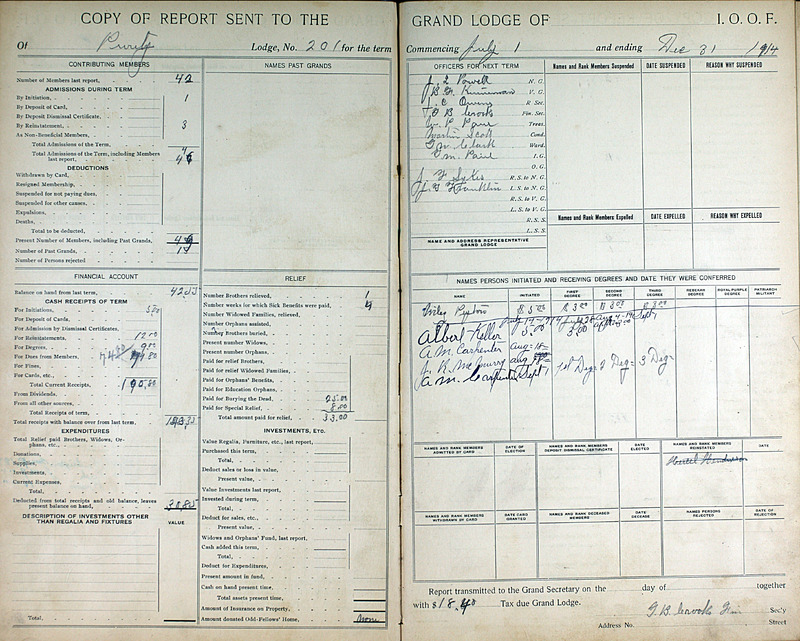 COPY OF REPORT SENT TO THE
Of Purity Lodge, No. 201 for the term
CONTRIBUTING MEMBERS
Number of Members last report, 42
ADMISSIONS DURING TERM
By Initiation, 1
By Deposit of Card,
By Deposit Dismissal Certificate,
By Reinstatement, 3
As Non-Beneficial Members,
Total Admissions of the Term,
Total Admissions of the Term, including Members
last report,
DEDUCTIONS
Withdrawn by Card,
Resigned Membership,
Suspended for not paying dues,
Suspended for other causes,
Expulsions,
Deaths,
Total to be deducted,
Present Number of Members, including Past Grands,
Number of Past Grands,
Number of Persons rejected
FINANCIAL ACCOUNT
Balance on hand from last term,
CASH RECEIPTS OF TERM
For Initiations,
For Deposit of Cards,
For Admission by Dismissal Certificates,
For Reinstatements, 12.00
For Degrees, 9.00
For Dues from Members,
For Fines,
For Cards, etc.,
Total Current Receipts,
From Dividends,
From all other sources,
Total Receipts of term,
Total receipts with balance over from last term,
EXPENDITURES
Total Relief paid Brothers, Widows, Or-
phans, etc.,
Donations,
Supplies,
Investments,
Current Expenses,
Total,
Deducted from total receipts and old balance, leaves
present balance on hand,
DESCRIPTION OF INVESTMENTS OTHER
THAN REGALIA AND FIXTURES
VALUE
Total,
NAMES PAST GRANDS
RELIEF
Number Brothers relieved, 1
Number weeks for which Sick Benefits were paid, 4
Number Widowed Families, relieved,
Number Orphans assisted,
Number Brothers buried,
Present number Widows,
Present number Orphans,
Paid for relief Brothers,
Paid for relief Widowed Families,
Paid for Orphans' Benefits,
Paid for Education Orphans,
Paid for Burying the Dead, 25.00
Paid for Special Relief, 8.00
Total amount paid for relief, 33.00
INVESTMENTS, ETC.
Value Regalia, Furniture, etc., last report,
Purchased this term,
Total,
Deduct sales or loss in value,
Present value,
Value Investments last report,
Invested during term,
Total,
Deduct for sales, etc.,
Present value,
Widows and Orphans' Fund, last report,
Cash added this term,
Total,
Deduct for Expenditures,
Present amount in fund,
Cash on hand present time,
Total assets present time,
Amount of Insurance on Property,
Amount donated Odd-Fellows' Home, None
GRAND LODGE OF I. O. O. F.
Commencing July 1 and ending Dec 31 1914
OFFICERS FOR NEXT TERM
J. L. Powell N. G.
V. G.
J. C. Owens R Sec.
T. B. Crooks Fin. Sec.
Treas.
Martin Scott Cond.
Clark Ward.
I. G.
O. G.
Sykes R. S. to N. G.
Franklin L. S. to N. G.
R. S. to V. G.
L. S. to V. G.
R. S. S.
L. S. S.
NAME AND ADDRESS REPRESENTATIVE
GRAND LODGE
Names and Rank Members Suspended
DATE SUSPENDED
REASON WHY SUSPENDED
Names and Rank Members Expelled
DATE EXPELLED
REASON WHY EXPELLED
NAMES PERSONS INITIATED AND RECEIVING DEGREES AND DATE THEY WERE CONFERRED
NAME INITIATED FIRST DEGREE SECOND DEGREE THIRD DEGREE REBEKAH DEGREE ROYAL PURPLE DEGREE PATRIARCH MILITANT
Albert Keller 5.00 3.00
A. M. Carpenter Aug
A. M. Carpenter Sept 1 1st Deg 2 Deg 3 Deg
NAMES AND RANK MEMBERS ADMITTED BY CARD
DATE OF ELECTION
NAMES AND RANK MEMBERS DEPOSIT DISMISSAL CERTIFICATE
DATE ELECTED
NAMES AND RANK MEMBERS REINSTATED
DATE
NAMES AND RANK MEMBERS WITHDRAWN BY CARD
DATE CARD GRANTED
NAMES AND RANK DECEASED MEMBERS
DATE DECEASE
NAMES PERSONS REJECTED
DATE OF REJECTION
Report transmitted to the Grand Secretary on the day of together
with $18.40 Tax due Grand Lodge. T. B. Crooks Fin Sec'y
Address No. Street